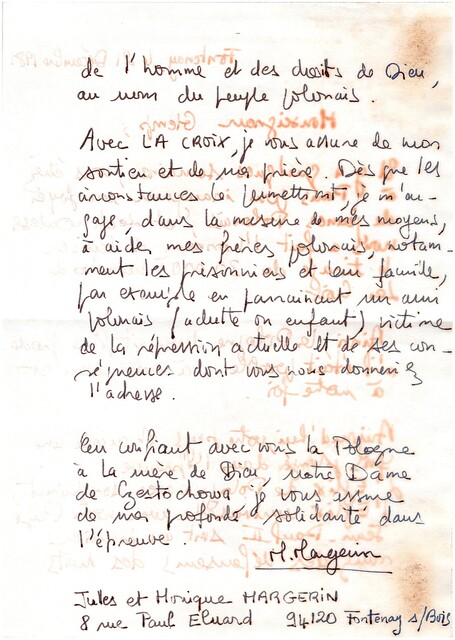 de l'homme et des droits de Dieu,
au nom du peuple polonais.
Avec LA CROIX, je vous assure de mon
soutien et de ma prière. Dès que les
circonstances le permettront, je m'en-
gage, dans la mesure de mes moyens,
à aider mes frères polonais, notam-
ment les prisonniers et leur famille,
par exemple en parrainant un ami
polonais (adulte ou enfant) victime
de la répression actuelle et de ses con-
séquences dont vous nous donneriez
l'adresse.
En confiant avec vous la Pologne
à la mère de Dieu, notre Dame
de Czestochowa, je vous assure
de ma profonde solidarité dans
l'épreuve.
M. Margerin
Jules et Monique MARGERIN
8 rue Paul Eluard 94120 Fontenay s/Bois